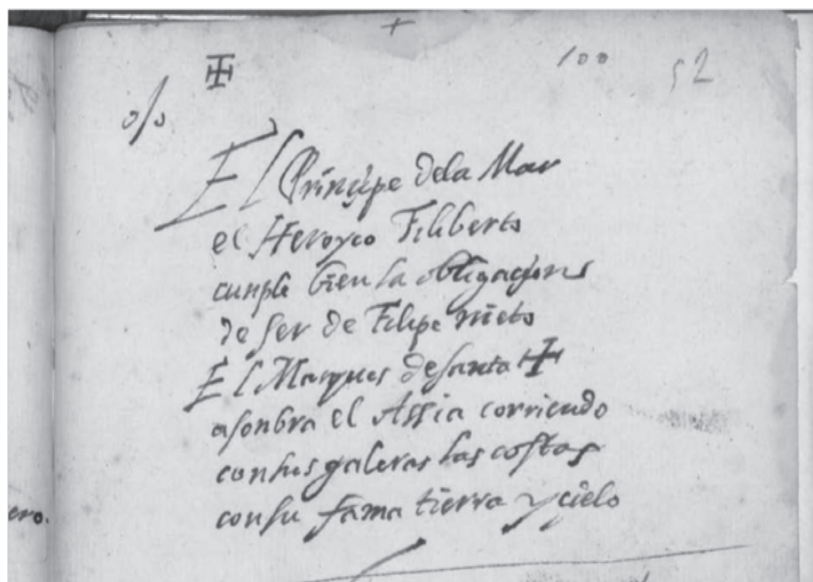 100 52
o/o
El Prinçipe dela Mar
el Heroyco Filiberto
cunple bien la obligaçion
de ser de Filipe nieto
El Marques de santa ✠
asonbra el Assia corriendo
con sus galeras las costas
con su fama tierra y çielo
ero.